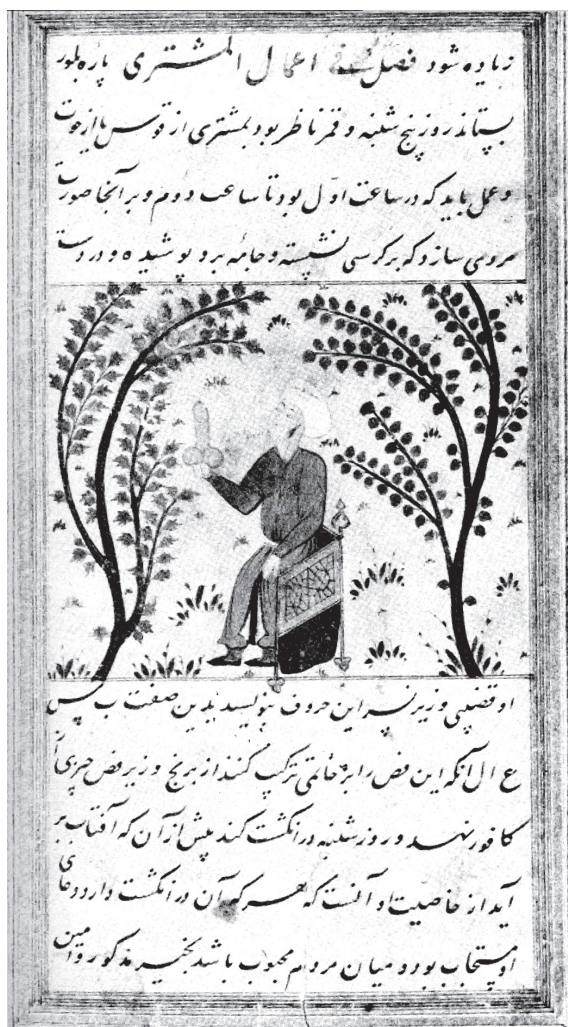 زیاده شود فصل فی اعمال المشتری پاره بلور
بستاند روز پنج شنبه و قمر ناظر بود بمشتری از قوس یا از حوت
و عمل باید که در ساعت اول بود تا ساعت دوم و بر آنجا صورت
مردی سازد که بر کرسی نشسته و جامه برو پوشیده و در دست
او قضیبی و زیر سر این حروف بنویسد بدین صفت ب س
ع ال آنکه این فص را بر خاتمی ترکیب کنند از برنج و زیر فص چیزی از
کافور نهد و روز شنبه در انگشت کند پیش از آن که آفتاب بر
آید از خاصیت او آنست که هر که آن در انگشت دارد دعای
او مستجاب بود و میان مردم محبوب باشد بخیر مذکور و امین